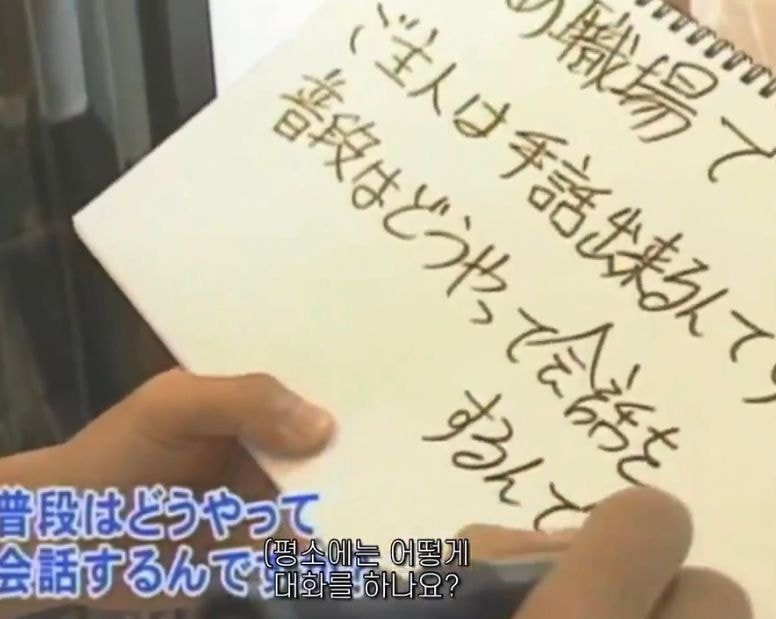 の職場で
ご主人は手話出来るんです
普段はどうやって会話を
するんで
普段はどうやって
会話するんです
(평소에는 어떻게
대화를 하나요?